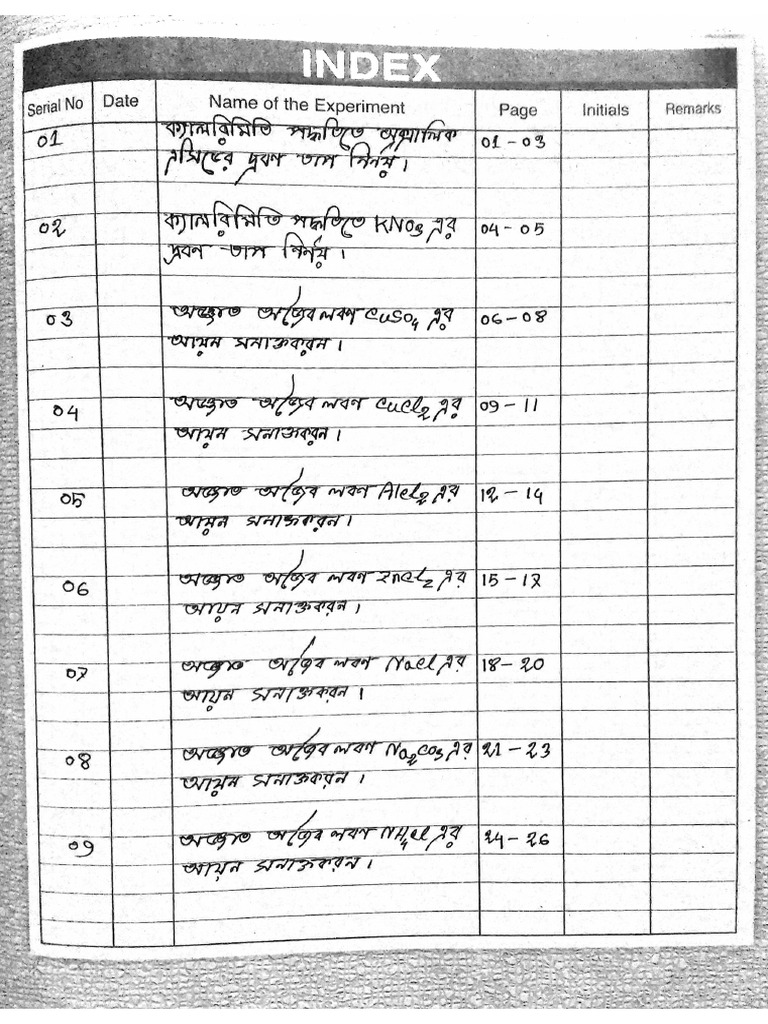 INDEX
Serial No Date Name of the Experiment Page Initials Remarks
01 ক্যালরিমিতি পদ্ধতিতে অক্সালিক 01-03
এসিডের দ্রবণ তাপ নির্ণয়।
02 ক্যালরিমিতি পদ্ধতিতে KNO3 এর 04-05
দ্রবণ তাপ নির্ণয়।
03 অজ্ঞাত অজৈব লবণ CuSO4 এর 06-08
আয়ন সনাক্তকরন।
04 অজ্ঞাত অজৈব লবণ CuCl2 এর 09-11
আয়ন সনাক্তকরন।
05 অজ্ঞাত অজৈব লবণ AlCl2 এর 12-14
আয়ন সনাক্তকরন।
06 অজ্ঞাত অজৈব লবণ ZnCl2 এর 15-17
আয়ন সনাক্তকরন।
07 অজ্ঞাত অজৈব লবণ NaCl এর 18-20
আয়ন সনাক্তকরন।
08 অজ্ঞাত অজৈব লবণ Na2CO3 এর 21-23
আয়ন সনাক্তকরন।
09 অজ্ঞাত অজৈব লবণ NH4Cl এর 24-26
আয়ন সনাক্তকরন।